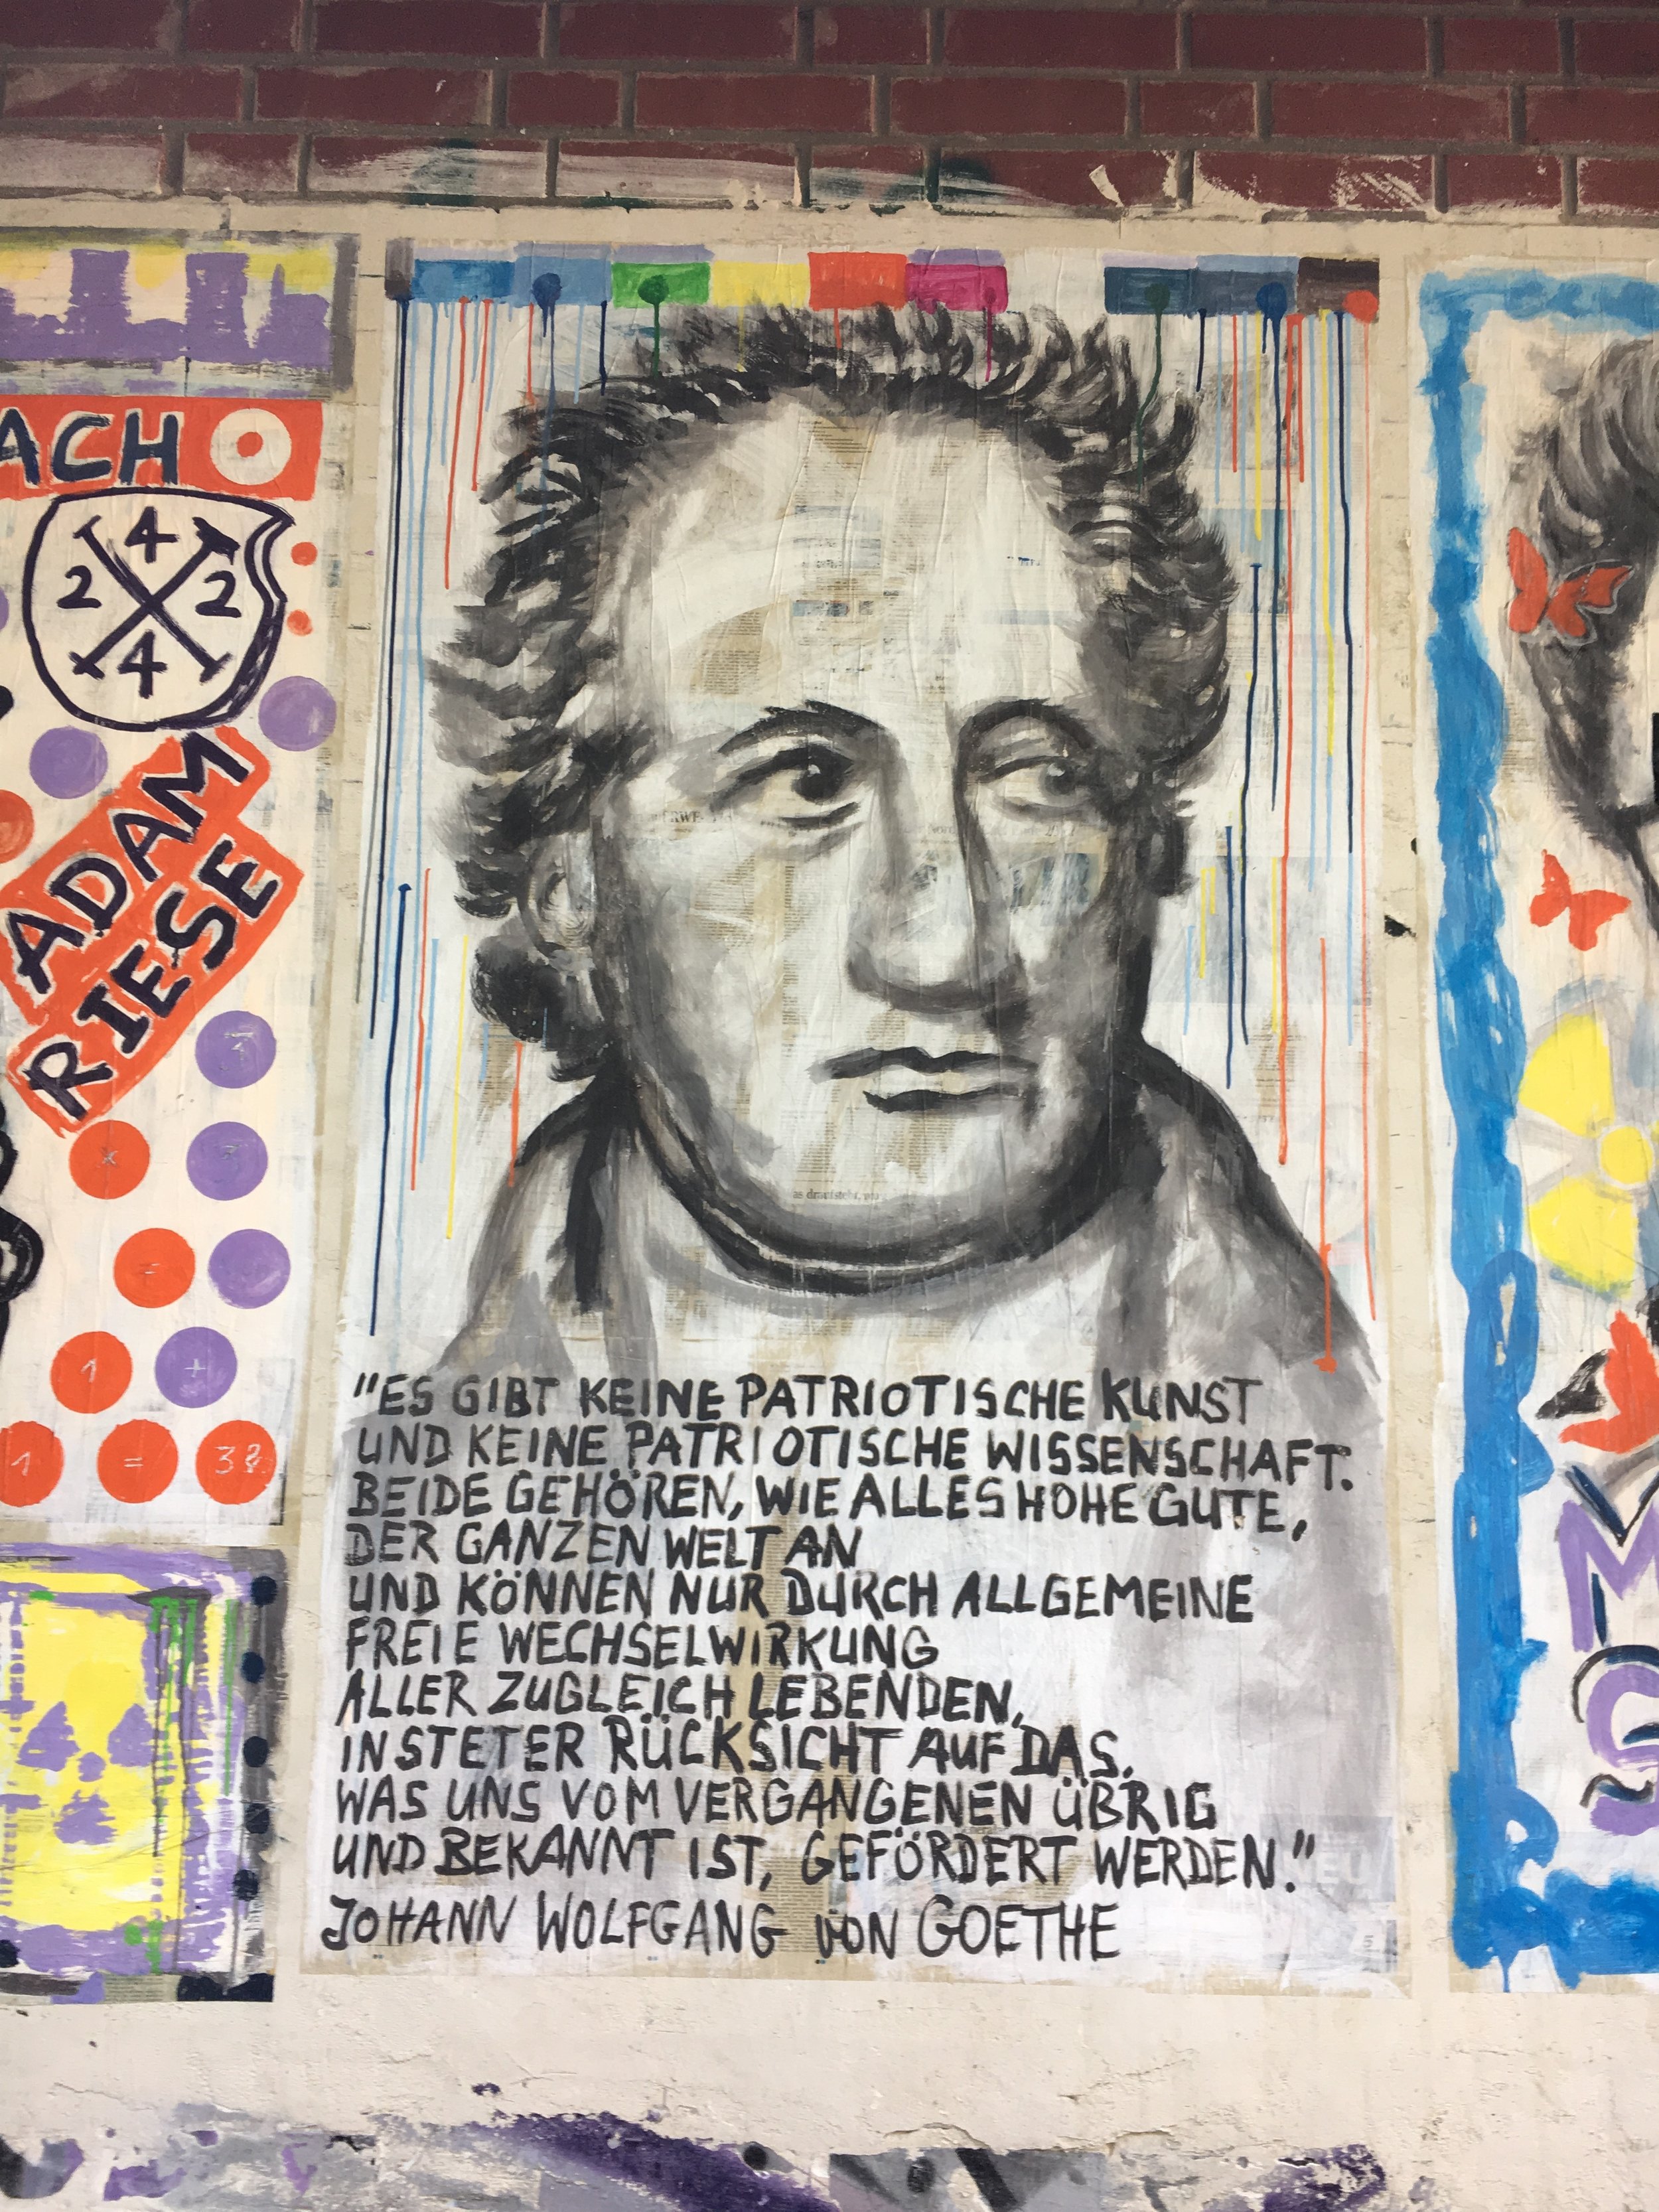 ACH
4
2 2
4
ADAM
RIESE
1 +
1 = 38
"ES GIBT KEINE PATRIOTISCHE KUNST
UND KEINE PATRIOTISCHE WISSENSCHAFT.
BEIDE GEHÖREN, WIE ALLES HOHE GUTE,
DER GANZEN WELT AN
UND KÖNNEN NUR DURCH ALLGEMEINE
FREIE WECHSELWIRKUNG
ALLER ZUGLEICH LEBENDEN,
IN STETER RÜCKSICHT AUF DAS,
WAS UNS VOM VERGANGENEN ÜBRIG
UND BEKANNT IST, GEFÖRDERT WERDEN."
JOHANN WOLFGANG VON GOETHE